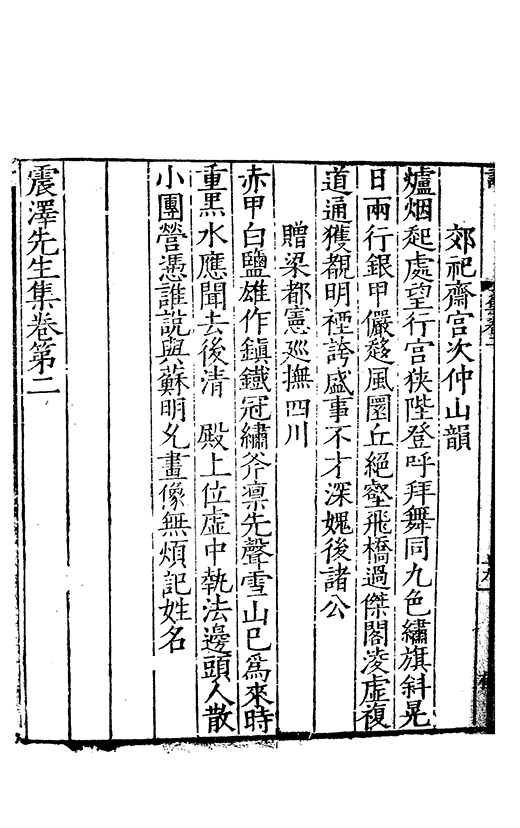 郊祀齋宫次仲山韻
爐烟起處望行宫狹陛登呼拜舞同九色繡旗斜晃
日兩行銀甲儼趍風圜丘絕壑飛橋過傑閣凌虛複
道通獲觀明禋誇盛事不才深媿後諸公
贈梁都憲廵撫四川
赤甲白鹽雄作鎮鐵冠繡斧凛先聲雪山已爲來時
重黒水應聞去後清 殿上位虛中執法邊頭人散
小團營憑誰說與蘇明允畫像無煩記姓名
震澤先生集卷第二